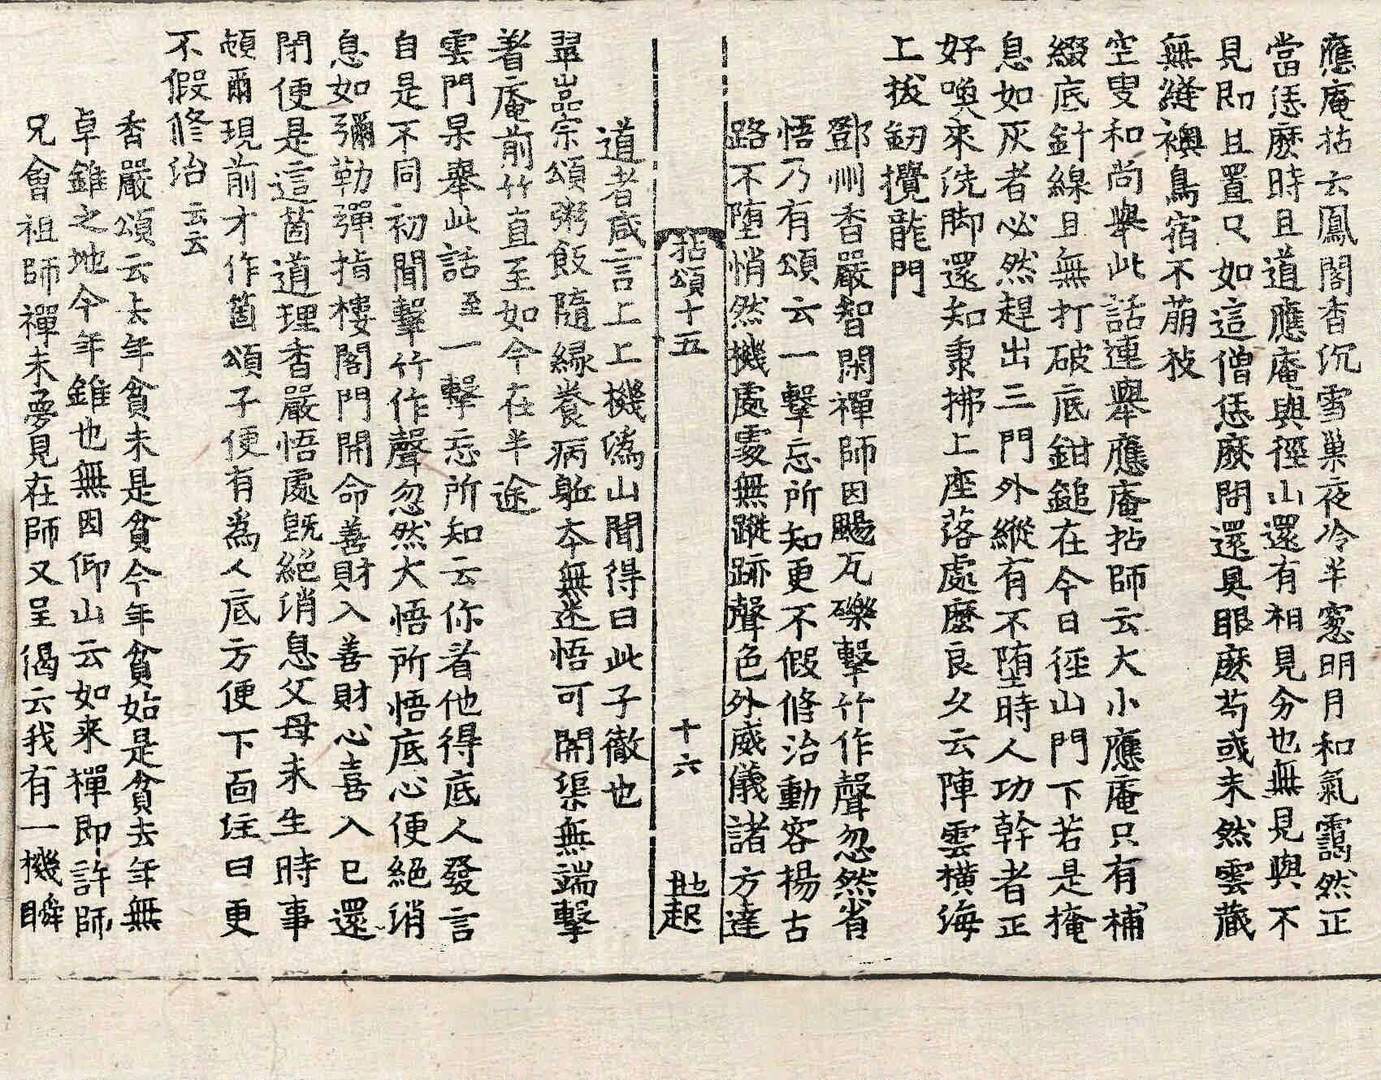 應庵拈云鳳閣香沉雪巢夜冷半窓明月和氣靄然正
當恁麽時且道應庵與徑山還有相見分也無見與不
見即且置只如這僧恁麽問還具眼麽苟或未然雲藏
無縫襖鳥宿不萠枝
空叟和尚舉此話連舉應庵拈師云大小應庵只有補
綴底針線且無打破底鉗鎚在今日徑山門下若是掩
息如灰者必然趕出三門外縱有不墮時人功幹者正
好喚來洗脚還知秉拂上座落處麽良久云陣雲橫海
上拔劒攪龍門
鄧州香嚴智閑禪師因颺瓦礫擊竹作聲忽然省
悟乃有頌云一擊忘所知更不假修治動容揚古
路不墮悄然機處處無蹤跡聲色外威儀諸方達
拈頌十五 十六
道者咸言上上機潙山聞得曰此子徹也
翠嵓宗頌粥飯隨緣養病軀本無迷悟可開渠無端擊
着庵前竹直至如今在半途
雲門杲舉此話至一擊忘所知云你看他得底人發言
自是不同初聞擊竹作聲忽然大悟所悟底心便絕消
息如彌勒彈指樓閣門開命善財入善財心喜入已還
閉便是這箇道理香嚴悟處旣絕消息父母未生時事
頓爾現前才作箇頌子便有爲人底方便下面注曰更
不假修治云云
香嚴頌云去年貧未是貧今年貧始是貧去年無
卓錐之地今年錐也無因仰山云如来禪即許師
兄會祖師禪未夢見在師又呈偈云我有一機瞬